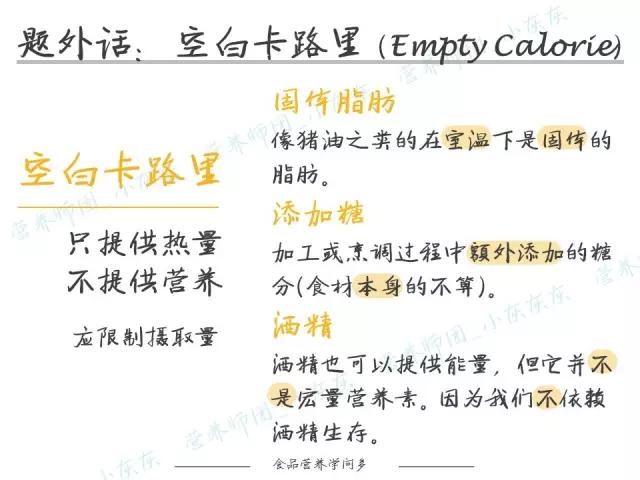 题外话: 空白卡路里 (Empty Calorie)
固体脂肪
像猪油之类的在室温下是固体的
脂肪。
空白卡路里
只提供热量
不提供营养
应限制摄取量
添加糖
加工或烹调过程中额外添加的糖
分(食材本身的不算)。
酒精
酒精也可以提供能量, 但它并不
是宏量营养素。因为我们不依赖
酒精生存。
食品营养学问多
营养师团_小灰灰
营养师团_小灰灰灰